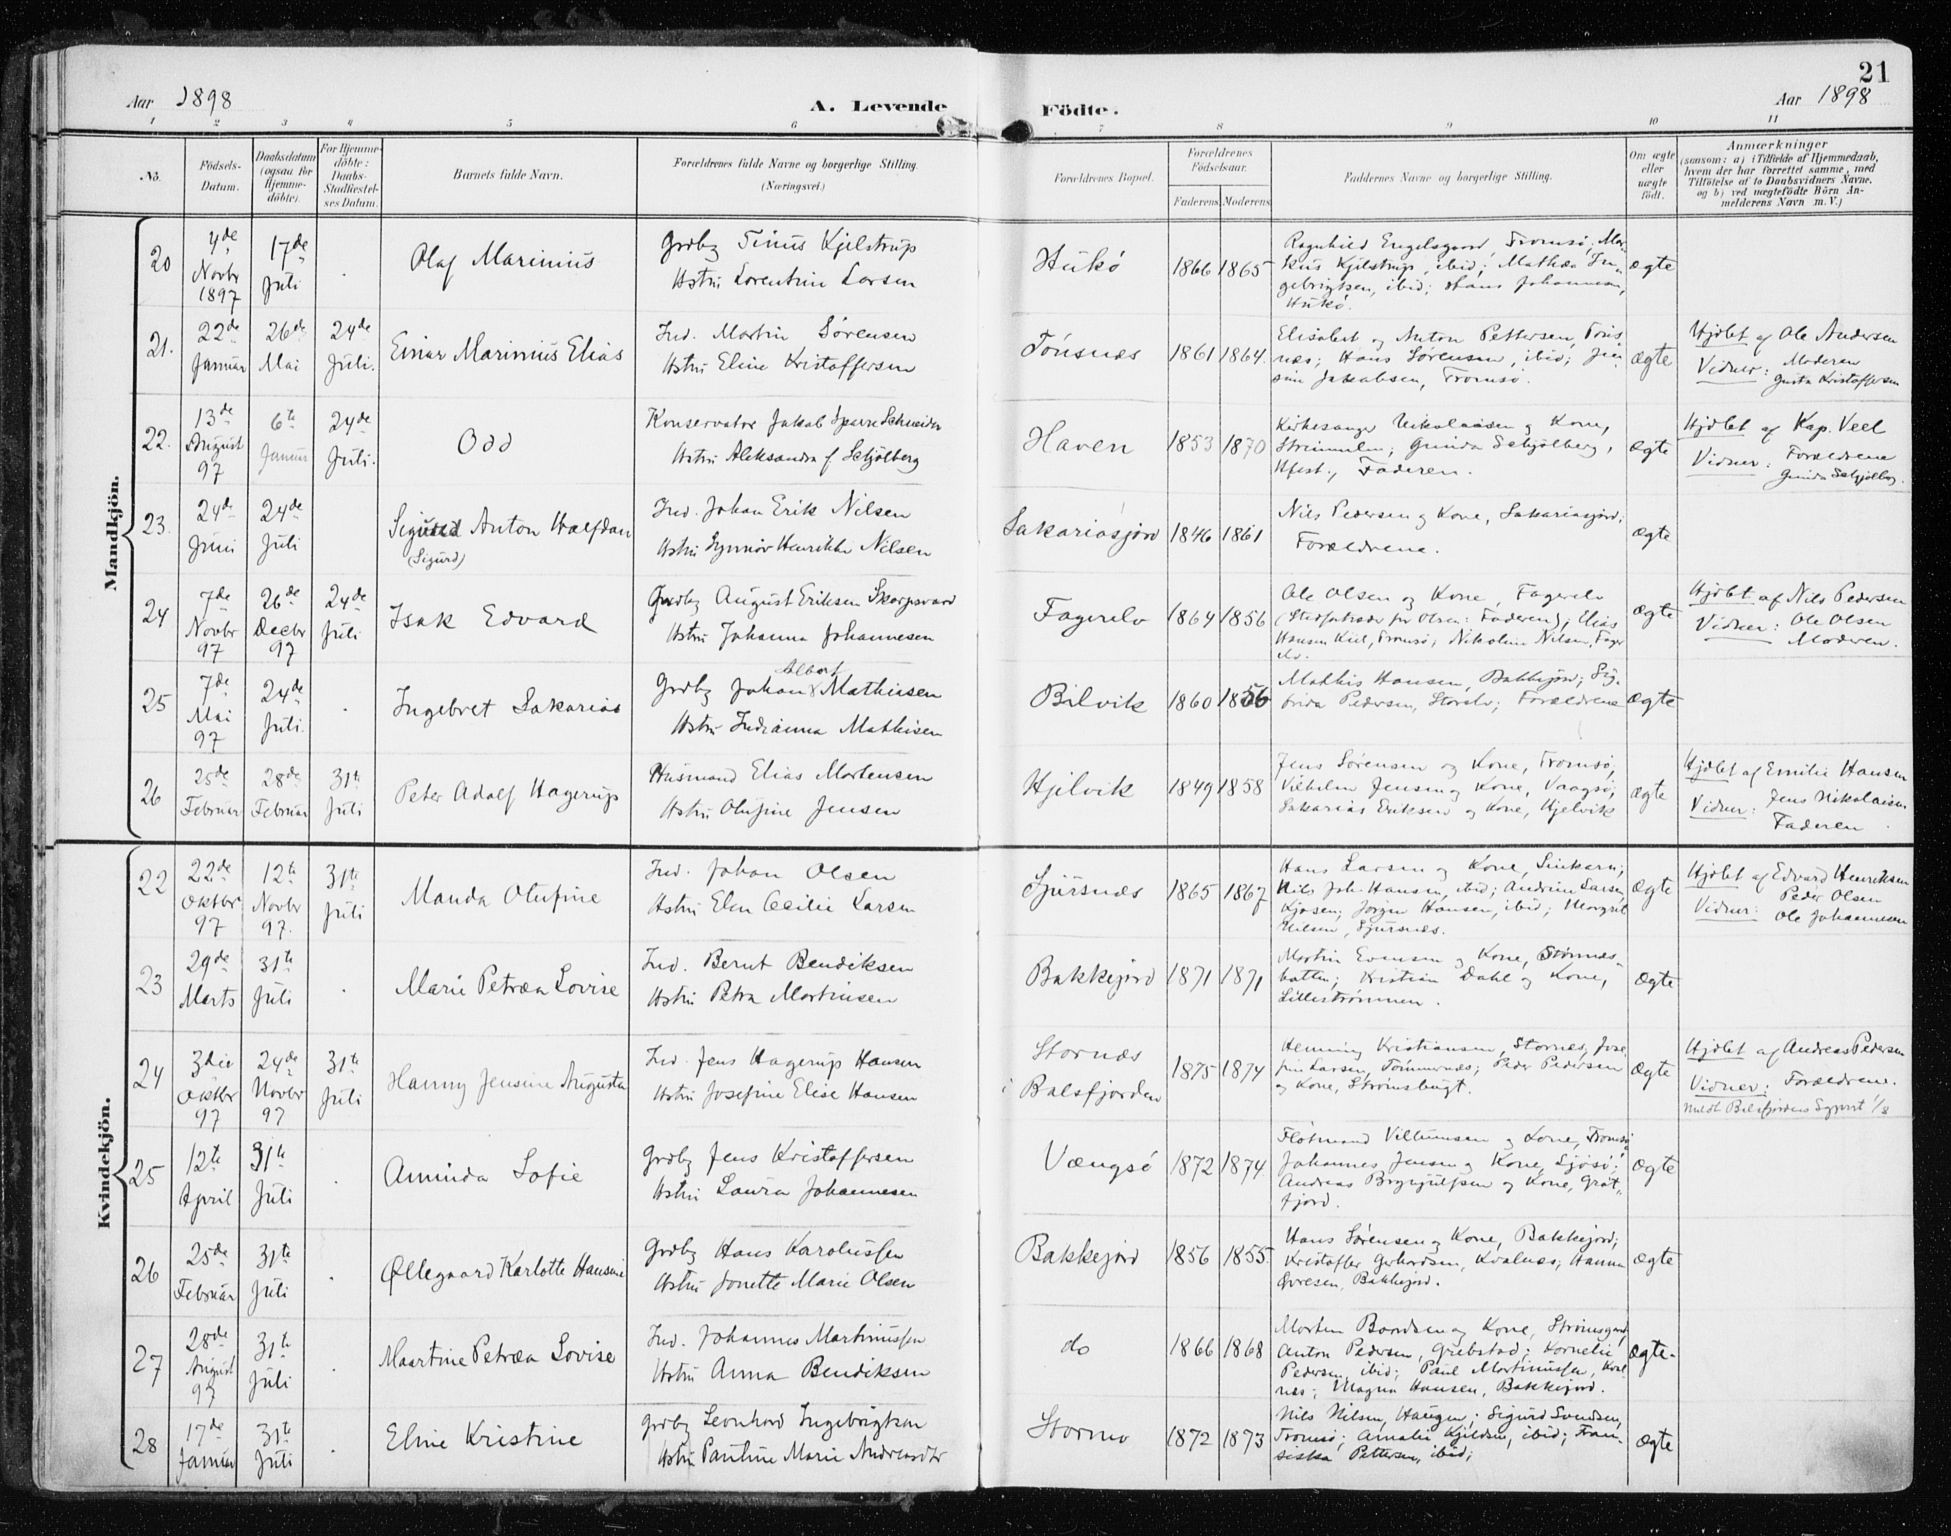 21
Aar 1898
A. Levende Födte.
Aar 1898
1 2 3 4 5 6 7 8 9 10 11
No.
Födsels-Datum.
Daabsdatum (ogsaa for Hjemmedöbte).
For Hjemmedöbte: Daabs-Stadfæstelses Datum.
Barnets fulde Navn.
Forældrenes fulde Navne og borgerlige Stilling. (Næringsvei.)
Forældrenes Bopæl.
Forældrenes Födselsaar.
Faderens Moderens
Faddernes Navne og borgerlige Stilling.
Om ægte eller uægte födt.
Anmærkninger
(saasom: a) i Tilfælde af Hjemmedaab, hvem der har forrettet samme, med Tilföielse af to Daabsvidners Navne. og b) ved uægtefödte Börn Anmelderens Navn m. V.)
Mandkjön.
20
4de Novbr 1897
17de Juli
Olaf Marinius
Grdbg Tinus Kjelstrup
Hstru Lorentine Larsen
Hukö
1866 1865
Ragnhild Engelsgaard, Tromsö; Mar-
kus Kjilstrup, ibid; Mathea In-
gebrigtsen, ibid; Hans Johannesen,
Hukö.
ægte
21.
22de Januar
26de Mai
24de Juli.
Einar Marinius Elias
Ind. Martin Sörensen
Hstru Eline Kristoffersen
Tönsnæs
1861 1864
Elisabet og Anton Pettersen, Töns-
næs; Hans Sörensen, ibid; Jen-
sine Jakobsen, Tromsö.
ægte
Hjdbt af Ole Andersen
Vidner: Moderen
Gusta Kristoffersen
22.
13de August 97
6te Januar
24de Juli.
Odd
Konservator Jakob Sparre Schneider
Hstru Aleksandra f Schjölberg
Haven
1853 1870
Kirkesanger Nikolaisen og Kone,
Gunda Schjölberg,
Hfest., Faderen.
ægte
Hjdbt af Kap. Veel
Vidner: Forældrene
Gunda Schjölberg
23.
24de Juni
24de Juli
Sigurd Anton Halfdan
(Sigurd)
Ind. Johan Erik Nilsen
Hstru Synnöv Henrikke Nilsen
Sakariasjord
1846 1861
Nils Pedersen og Kone, Sakariasjord;
Forældrene.
ægte
24
7de Novbr 97
26de Decbr 97
24de Juli
Isak Edvard
Grdbg August Eriksen Skarpsvard
Hstru Johanna Johannesen
Fagerelv
1864 1856
Ole Olsen og Kone, Fagerelv
(Stedfortræder for Olsen: Faderen); Elias
Hansen Kiil, Tromsö; Nikoline Nilsen, Fager
elv.
ægte
Hjdbt af Nils Pedersen
Vidner: Ole Olsen
Moderen.
25
7de Mai 97
24de Juli.
Ingebret Sakarias
Albert
Grdbg Johan Mathiesen
Hstru Indianna Mathisen
Bilvik
1860 1856
Mathis Hansen, Bakkejord; Sig-
frida Pedersen, Storelv; Forældrene
ægte
26
25de Februar
28de Februar
31te Juli
Peter Adolf Hagerup
Husmand Elias Mortensen
Hstru Olufine Jensen
Hjelvik
1849 1858
Jens Sörensen og Kone, Tromsö,
Vilhelm Jensen og Kone, Vaagsö;
Sakarias Eriksen og Kone, Hjelvik
ægte
Hjdbt af Emilie Hansen
Vidner: Jens Nikolaisen
Faderen.
Kvindekjön.
22
22de Oktbr 97
12te Novbr 97.
31te Juli
Manda Olufine
Ind. Johan Olsen
Hstru Elen Cecilie Larsen
Sjursnæs
1865 1867
Hans Larsen og Kone, Sinkarn;
Nils Joh. Hansen, ibid; Andrine Larsen,
Kjosen; Jörgen Hansen, ibid; Margret
Nilsen, Sjursnæs.
ægte
Hjdbt af Edvard Henriksen
Vidner: Peder Olsen
Ole Johannesen
23
29de Marts
31te Juli
Marie Petræa Lovise
Ind. Bernt Bendiksen
Hstru Petra Martinsen
Bakkejord
1871 1871
Martin Evensen og Kone,
Kristian Dahl og Kone,
Lillestrømmen.
ægte
24
3die Oktbr 97
24de Novbr 97
31te Juli
Hanny Jensine Augusta
Ind. Jens Hagerup Hansen
Hstru Josefine Elise Hansen
Stornæs
i Balsfjorden
1875 1874
Henning Kristiansen, Stornæs, Jose-
fine Larsen, Tömmernæs; Peder Pedersen
og Kone, Strömsbugt.
ægte
Hjdbt af Andreas Pedersen
Vidner: Forældrene.
25
12te April
31te Juli
Aminda Sofie
Grdbg Jens Kristoffersen
Hstru Laura Johannesen
Vængsö
1872 1874
Flötmand Villumsen og Kone, Tromsö
Johannes Jensen og Kone, Sjösö;
Andreas Brynjulfsen og Kone, Gröt-
fjord.
ægte
26
25de Februar
31te Juli
Øllegaard Karlotte Hansine
Grdbg Hans Karolussen
Hstru Jonette Marie Olsen
Bakkejord
1856 1855
Hans Sörensen og Kone, Bakkejord;
Kristoffer Gerhardsen, Kvalnæs; Hanna
Bakkejord.
ægte
27
28de August 97
31te Juli
Maartine Petræa Lovise
Ind. Johannes Martinussen
Hstru Anna Bendiksen
do
1866 1868
Morten Baardsen og Kone, Strömsgard,
Anton Pedersen, Grebstad; Kornelie
Pedersen, ibid; Paul Martinussen, Kval-
næs; Magna Hansen, Bakkejord.
ægte
28
17de Januar
31te Juli
Eline Kristine
Grdbg Leonhard Ingebrigtsen
Hstru Pauline Marie Andreasdtr
Stormo
1872 1873
Nils Nilsen, Haugen; Sigurd Svendsen,
Tromsö; Amalie Kjeldsen, ibid; Fran-
siska Pettersen, ibid;
ægte